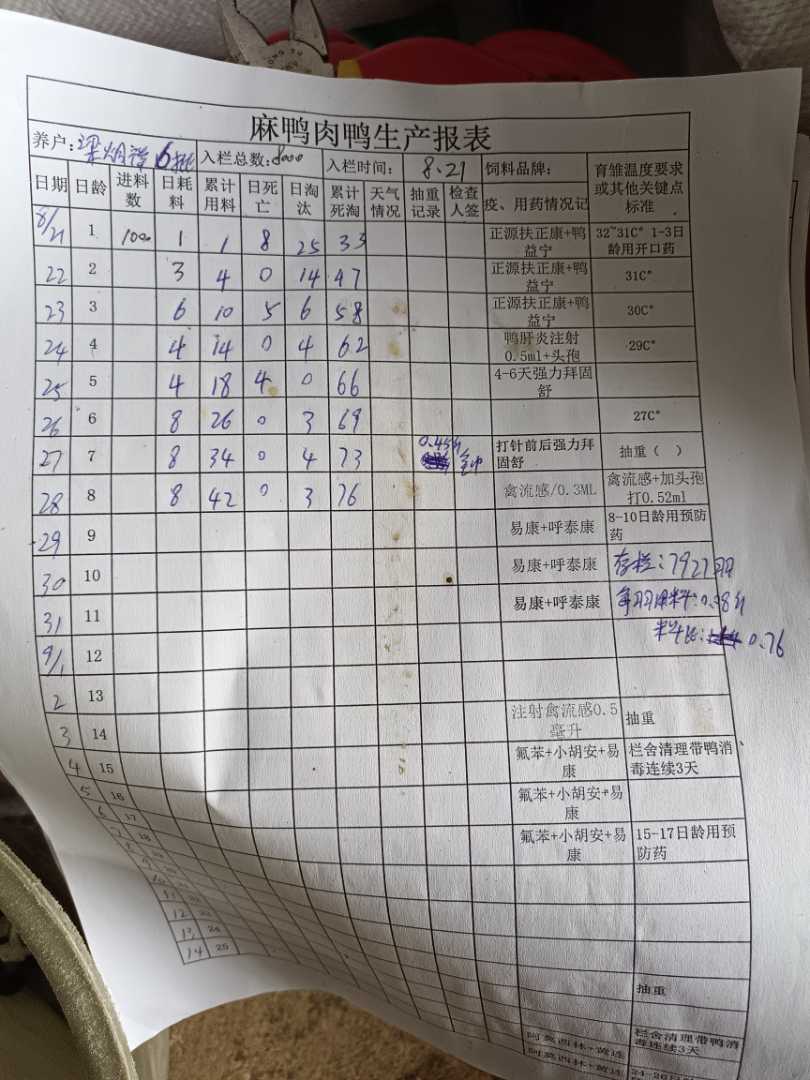 麻鸭肉鸭生产报表
养户: 6批 入栏总数:8000 入栏时间: 8.21 饲料品牌: 育雏温度要求或其他关键点标准
日期 日龄 进料数 日耗料 累计用料 日死亡 日淘汰 累计死淘 天气情况 抽重记录 检查人签 疫、用药情况记
8/21 1 100 1 1 8 25 33 正源扶正康+鸭益宁 32~31C° 1-3日龄用开口药
22 2 3 4 0 14 47 正源扶正康+鸭益宁 31C°
23 3 6 10 5 6 58 正源扶正康+鸭益宁 30C°
24 4 4 14 0 4 62 鸭肝炎注射0.5ml+头孢 29C°
25 5 4 18 4 0 66 4-6天强力拜固舒
26 6 8 26 0 3 69 27C°
27 7 8 34 0 4 73 0.45斤 打针前后强力拜固舒 抽重（ ）
28 8 8 42 0 3 76 禽流感/0.3ML 禽流感+加头孢打0.52ml
29 9 易康+呼泰康 8-10日龄用预防药
30 10 易康+呼泰康 存栏:7927羽
31 11 易康+呼泰康 每羽用料:0.38斤
料比: 0.76
9/1 12
2 13
3 14 注射禽流感0.5毫升 抽重
4 15 氟苯+小胡安+易康 栏舍清理带鸭消毒连续3天
5 16 氟苯+小胡安+易康
6 17 氟苯+小胡安+易康 15-17日龄用预防药
7 18
8
9
10
11
12
13 24
14 25
抽重
栏舍清理带鸭消毒连续3天
阿莫西林+黄连
阿莫西林+黄连